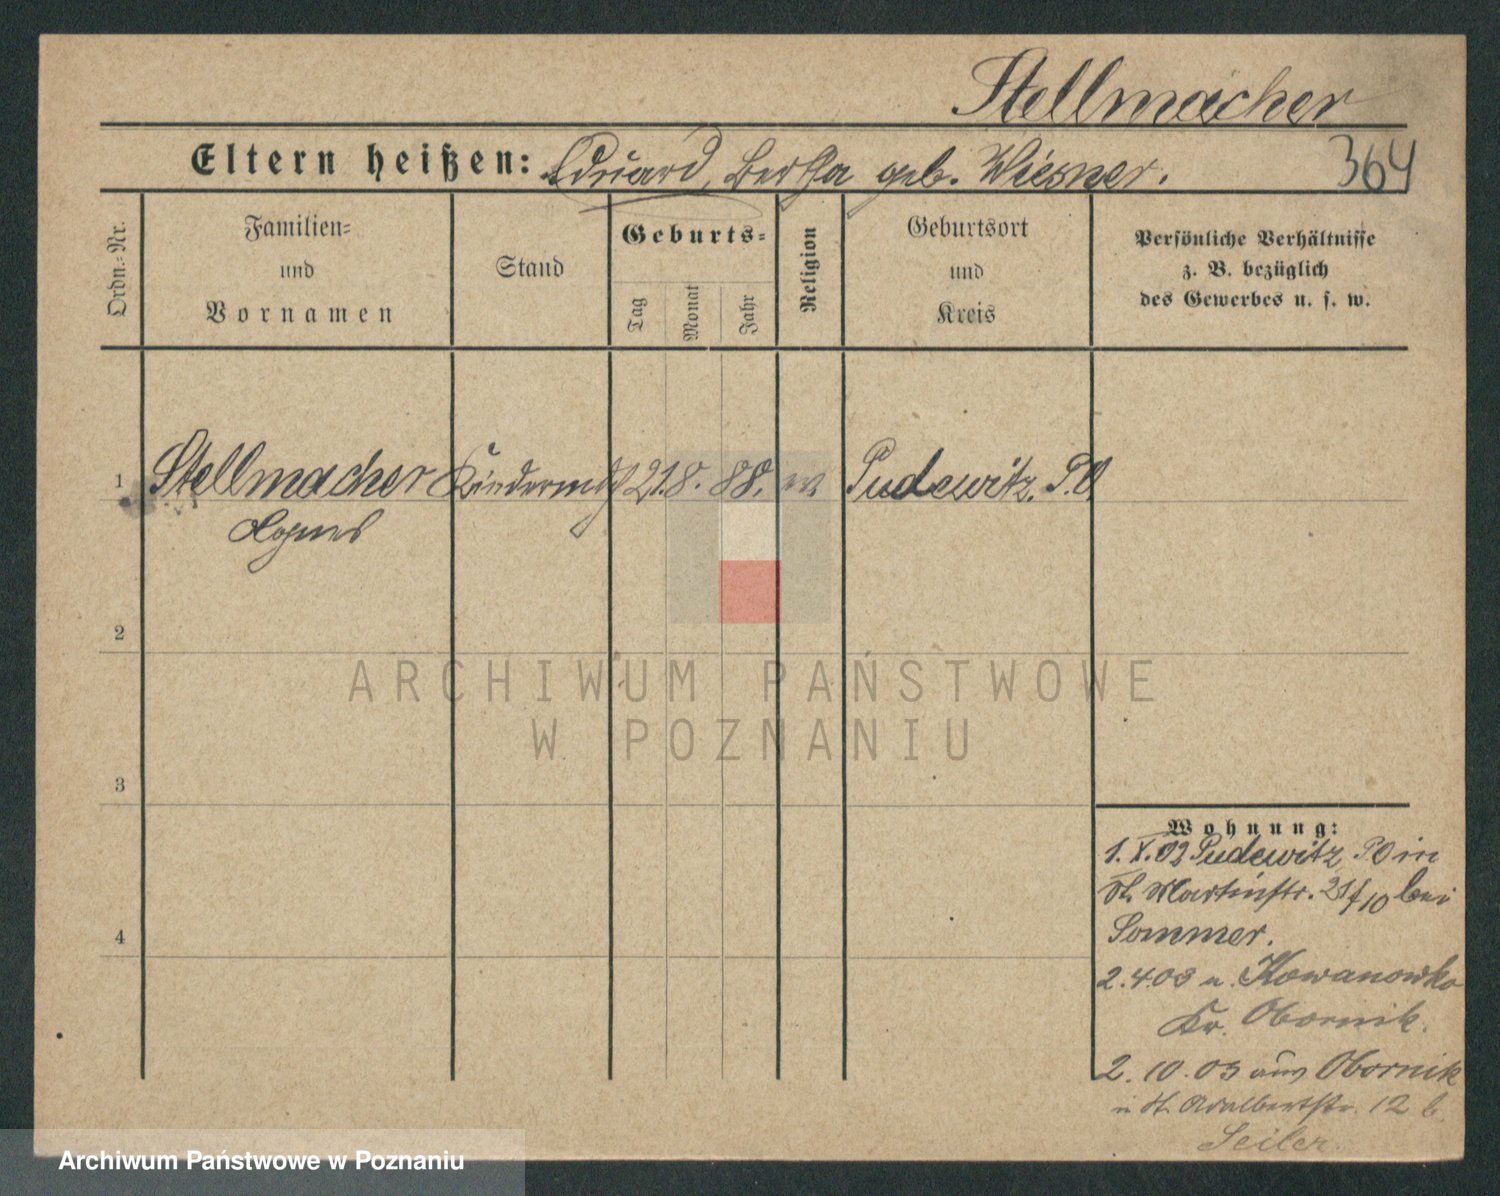 Stellmacher
Eltern heißen: Eduard, Bertha geb. Wiesner.
364
Ordn.-Nr.
Familien-
und
Vornamen
Stand
Geburts-
Tag
Monat
Jahr
Religion
Geburtsort
und
Kreis
Persönliche Verhältnisse
z. B. bezüglich
des Gewerbes u. s. w.
1 Stellmacher Kindermdch 21. 8. 88. ev Pudewitz. P.O
Agnes
2
ARCHIWUM PAŃSTWOWE
W POZNANIU
3
4
Wohnung:
1. X. 02 Pudewitz PO in
St. Martinstr. 21/10 bei
Sommer.
2.4.03 n. Kowanowko
Kr. Obornik.
2. 10. 03 aus Obornik
n St. Adalbertstr. 12 b.
Seiler.
Archiwum Państwowe w Poznaniu